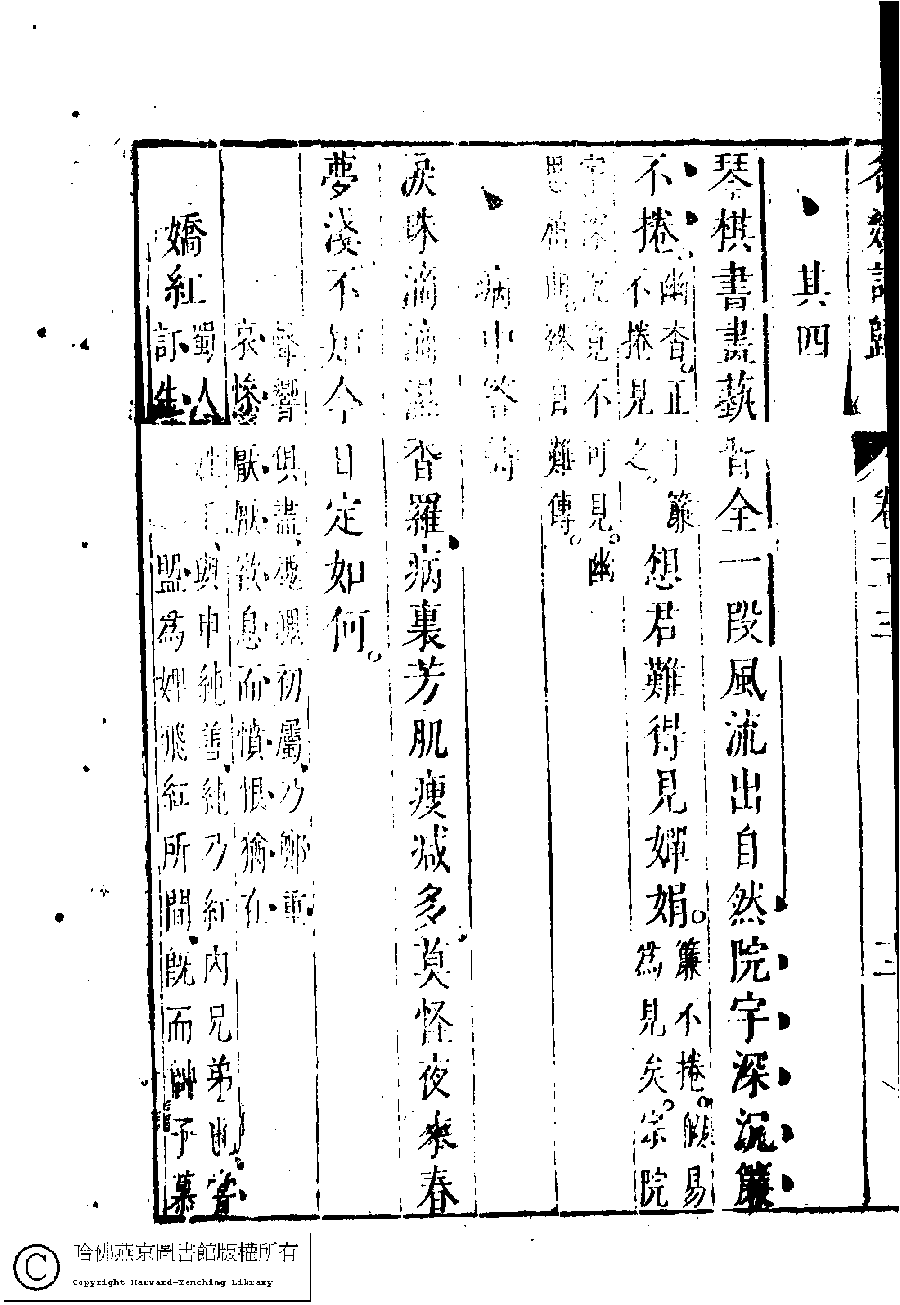 名媛詩歸 卷二十三 二
其四
琴棋書畫藝皆全一段風流出自然院宇深沉簾
不捲幽杳正簾
不捲見之想君難得見嬋娟簾不捲似易
為見矣宗院
字深沉竟不可見幽
思難傳
病中答
淚珠滴滴濕香羅病裏芳肌瘦減多莫怪夜來春
夢淺不知今日定如何
聲響俱盡初屬乃鄭重
哀慘厭厭欲息而憤恨猶在
嬌紅蜀人姓王與申純善純乃紅內兄弟也嘗
訂生盟為婢飛紅所間既而帥子慕
哈佛燕京圖書館版權所有
Copyright Harvard-Yenching Library